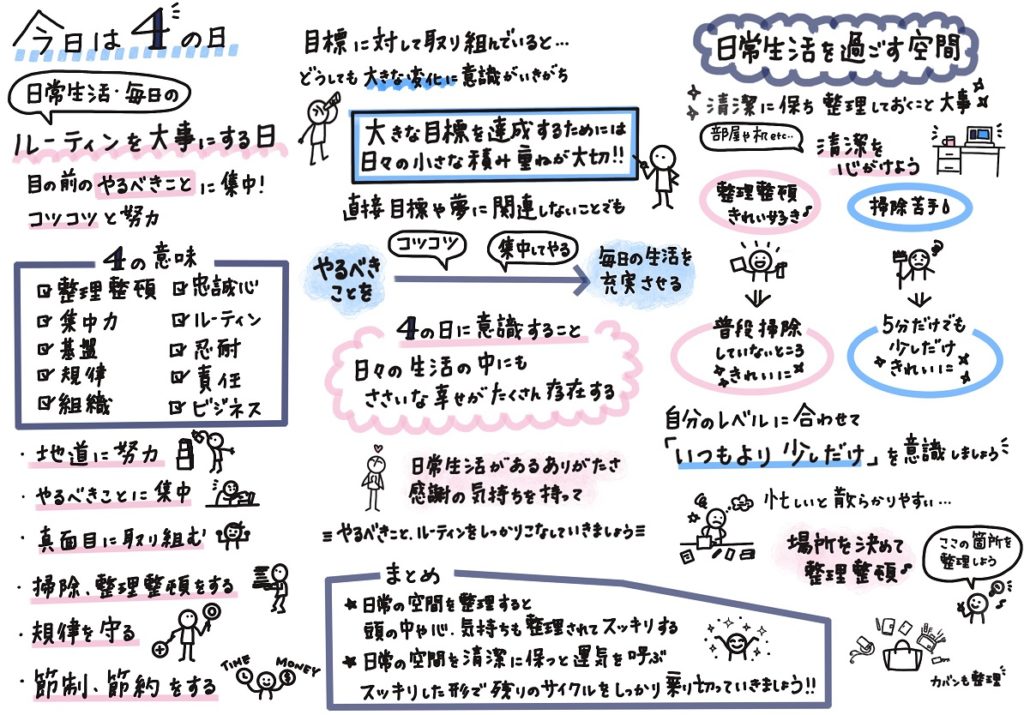 今日は4の日
日常生活・毎日の
ルーティンを大事にする日
目の前のやるべきことに集中!
コツコツと努力
4の意味
整理整頓
集中力
基盤
規律
組織
忠誠心
ルーティン
忍耐
責任
ビジネス
・地道に努力
・やるべきことに集中
・真面目に取り組む
・掃除、整理整頓をする
・規律を守る
・節制、節約をする
TIME
MONEY
目標に対して取り組んでいると…
どうしても大きな変化に意識がいきがち
大きな目標を達成するためには
日々の小さな積み重ねが大切!!
直接目標や夢に関連しないことでも
コツコツ
集中してやる
やるべき
ことを
毎日の生活を
充実させる
4の日に意識すること
日々の生活の中にも
ささいな幸せがたくさん存在する
日常生活があるありがたさ
感謝の気持ちを持って
やるべきこと、ルーティンをしっかりこなしていきましょう
まとめ
★日常の空間を整理すると
頭の中や心・気持ちも整理されてスッキリする
★日常の空間を清潔に保つと運気を呼ぶ
スッキリした形で残りのサイクルをしっかり乗り切っていきましょう!!
日常生活を過ごす空間
清潔に保ち整理しておくこと大事
部屋や机etc…
清潔を
心がけよう
整理整頓
きれい好き♪
掃除苦手
普段掃除
していないところ
きれいに
5分だけでも
少しだけ
きれいに
自分のレベルに合わせて
「いつもより少しだけ」を意識しましょう
忙しいと散らかりやすい…
場所を決めて
整理整頓♪
ここの箇所を
整理しよう
カバンも整理